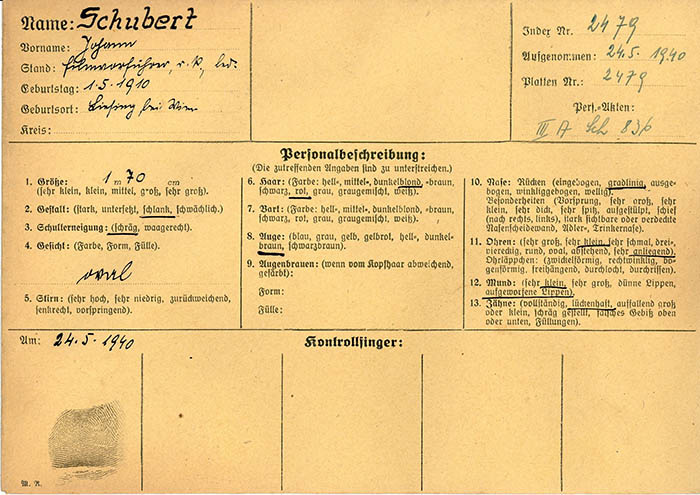 Name: Schubert
Vorname: Johann
Stand: Filmvorführer, r. k., led.
Geburtstag: 1.5.1910
Geburtsort: Liesing bei Wien
Kreis:
Index Nr. 2479
Aufgenommen: 24.5.1940
Platten Nr.: 2479
Pers.-Akten:
III A Sch 836
Personalbeschreibung:
(Die zutreffenden Angaben sind zu unterstreichen.)
1. Größe: 1 m 70 cm
(sehr klein, klein, mittel, groß, sehr groß).
2. Gestalt: (stark, untersetzt, schlank, schwächlich).
3. Schulterneigung: (schräg, waagerecht).
4. Gesicht: (Farbe, Form, Fülle).
oval
5. Stirn: (sehr hoch, sehr niedrig, zurückweichend,
senkrecht, vorspringend).
6. Haar: (Farbe: hell-, mittel-, dunkelblond, -braun,
schwarz, rot, grau, graugemischt, weiß).
7. Bart: (Farbe: hell-, mittel-, dunkelblond, -braun,
schwarz, rot, grau, graugemischt, weiß).
8. Auge: (blau, grau, gelb, gelbrot, hell-, dunkel-
braun, schwarzbraun).
9. Augenbrauen: (wenn vom Kopfhaar abweichend,
gefärbt):
Form:
Fülle:
10. Nase: Rücken (eingebogen, gradlinig, ausge-
bogen, winkliggebogen, wellig).
Besonderheiten (Vorsprung, sehr groß, sehr
klein, sehr dick, sehr spitz, aufgestülpt, schief
(nach rechts, links), stark sichtbare oder verdeckte
Nasenscheidewand, Adler-, Trinkernase).
11. Ohren: (sehr groß, sehr klein, sehr schmal, drei-,
viereckig, rund, oval, abstehend, sehr anliegend).
Ohrläppchen: (zwickelförmig, rechtwinklig, bo-
genförmig, freihängend, durchlocht, durchrissen).
12. Mund: (sehr klein, sehr groß, dünne Lippen,
aufgeworfene Lippen).
13. Zähne: (vollständig, lückenhaft, auffallend groß
oder klein, schräg gestellt, falsches Gebiß oben
oder unten, Füllungen).
Am: 24.5.1940
Kontrollfinger:
M. R.